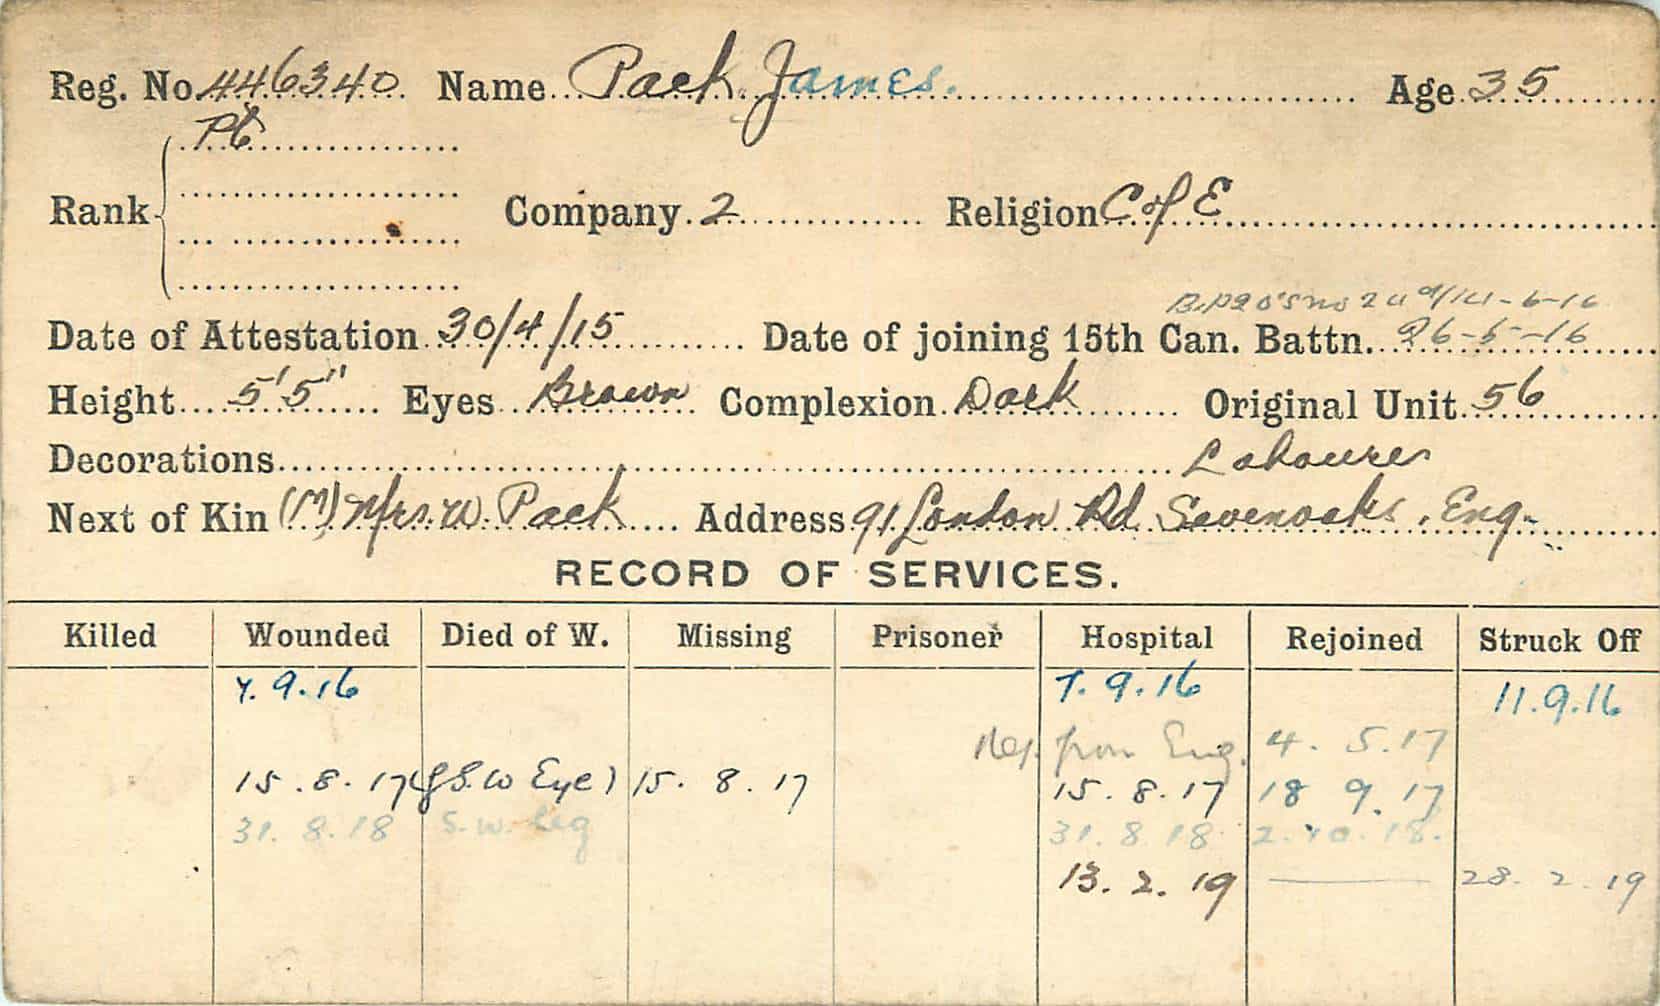 Reg. No. 446340 Name Pack James. Age 35
Pte
Rank Company 2 Religion C of E
14-6-16
Date of Attestation 30/4/15 Date of joining 15th Can. Battn. 26-5-16
Height 5'5" Eyes Brown Complexion Dark Original Unit 56
Decorations Labourer
Next of Kin (M) Mrs. W. Pack Address 91 London Rd Sevenoaks, Eng.
RECORD OF SERVICES.
Killed Wounded Died of W. Missing Prisoner Hospital Rejoined Struck Off
7.9.16 7.9.16 11.9.16
Rej. from Eng. 4. 5.17
15.8.17 (G.S.W Eye) 15. 8. 17 15.8.17 18 9.17
31.8.18 S.W. Leg 31.8 18 2.10.18.
13. 2. 19 28. 2. 19